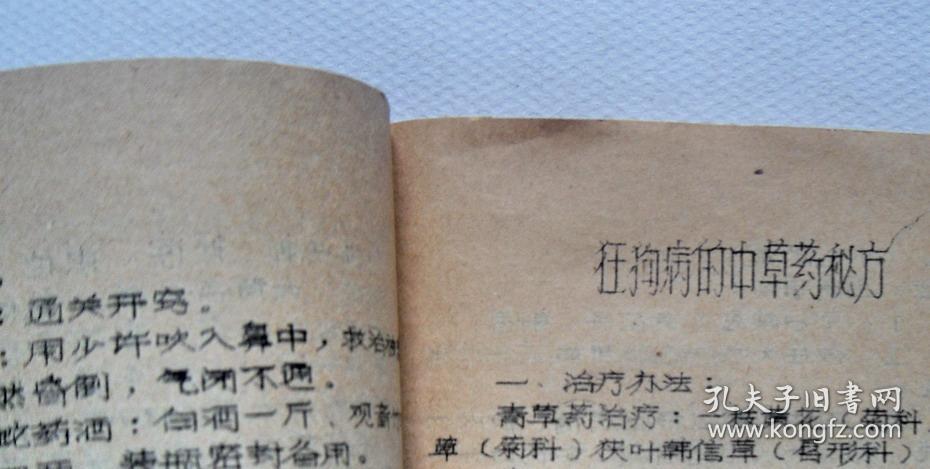 通关开窍。
：用少许吹入鼻中，救治
倒，气闭不通。
药酒：白酒一斤、观音
装瓶密封备用。
狂狗病的中草药秘方
一、治疗办法：
青草药治疗：
草（菊科）狭叶韩信草（唇形科）
孔夫子旧书网
www.kongfz.com